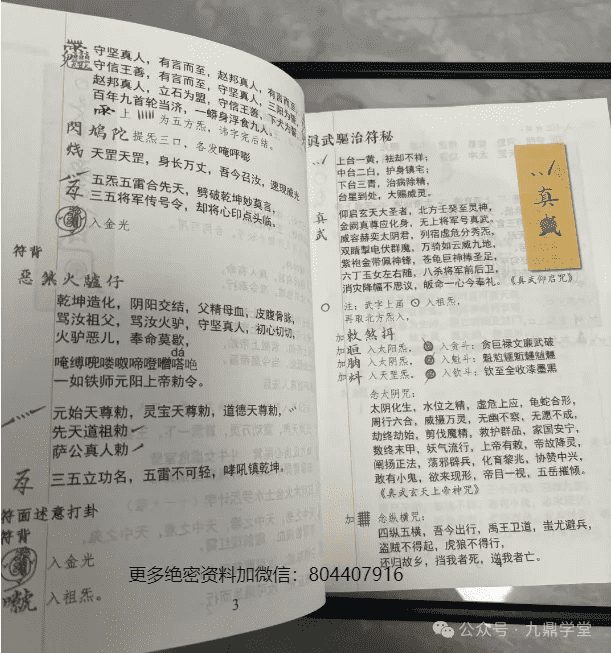 守坚真人，有言而至，赵邦真人，有言而至，
守信王善，有言而至，守坚真人，三阳为誓，
赵邦真人，立石为盟，守信王善，下犬为誓，
百年九首轮当济，一蟒身浮食九人。
上 为五方炁，讳字完后结。
閃鳩陀 提炁三口，各发唵呼嘭
烧 天罡天罡，身长万丈，吾今召汝，速现威光
五炁五雷合先天，劈破乾坤妙莫言，
三五将军传号令，却将心印点头临。
入金光
符背
惡煞火驢仔
乾坤造化，阴阳交结，父精母血，皮腹骨脉，
骂汝祖父，骂汝火驴，守坚真人，初心切切，
火驴恶儿，奉命莫歇，
dá
一如铁师元阳上帝勅令。
元始天尊勅，灵宝天尊勅，道德天尊勅，
先天道祖勅
萨公真人勅
三五立功名，五雷不可轻，哮吼镇乾坤。
符面述意打卦
符背
入金光
入祖炁。
3
真武驅治符秘
真武
上台一黄，祛却不祥；
中台二白，护身镇宅；
下台三青，治病除精，
台星到处，大赐威灵。
真武
仰启玄天大圣者，北方壬癸至灵神，
金阙真尊应化身，无上将军号真武，
威容赫奕太阴君，列宿虚危分秀炁，
双睛掣电伏群魔，万骑如云威九地，
紫袍金带佩神锋，苍龟巨神棒圣足，
六丁玉女左右随，八杀将军前后卫，
消灾降幅不思议，皈命一心今奉礼。《真武仰启咒》
注：武字上画 入祖炁，
再取北方炁入，
加 煞
加 入太阳炁， 入食斗：贪巨禄文廉武破
加 入太阴炁， 入魁斗：
加 入天罡炁， 入钦斗：钦至全收漆墨黑
念太阴咒：
太阴化生，水位之精，虚危上应，龟蛇合形，
周行六合，威摄万灵，无幽不察，无愿不成，
劫终劫始，剪伐魔精，救护群品，家国安宁，
数终末甲，妖气流行，上帝有敕，帝故降灵，
阐扬正法，荡邪辟兵，化育黎兆，协赞中兴，
敢有小鬼，欲来现形，帝目一视，五岳摧倾。
《真武玄天上帝神咒》
加 念纵横咒：
四纵五横，吾今出行，禹王卫道，蚩尤避兵，
盗贼不得起，虎狼不得行，
还归故乡，挡我者死，逆我者亡。
4
更多绝密资料加微信：804407916
公众号·九鼎学堂